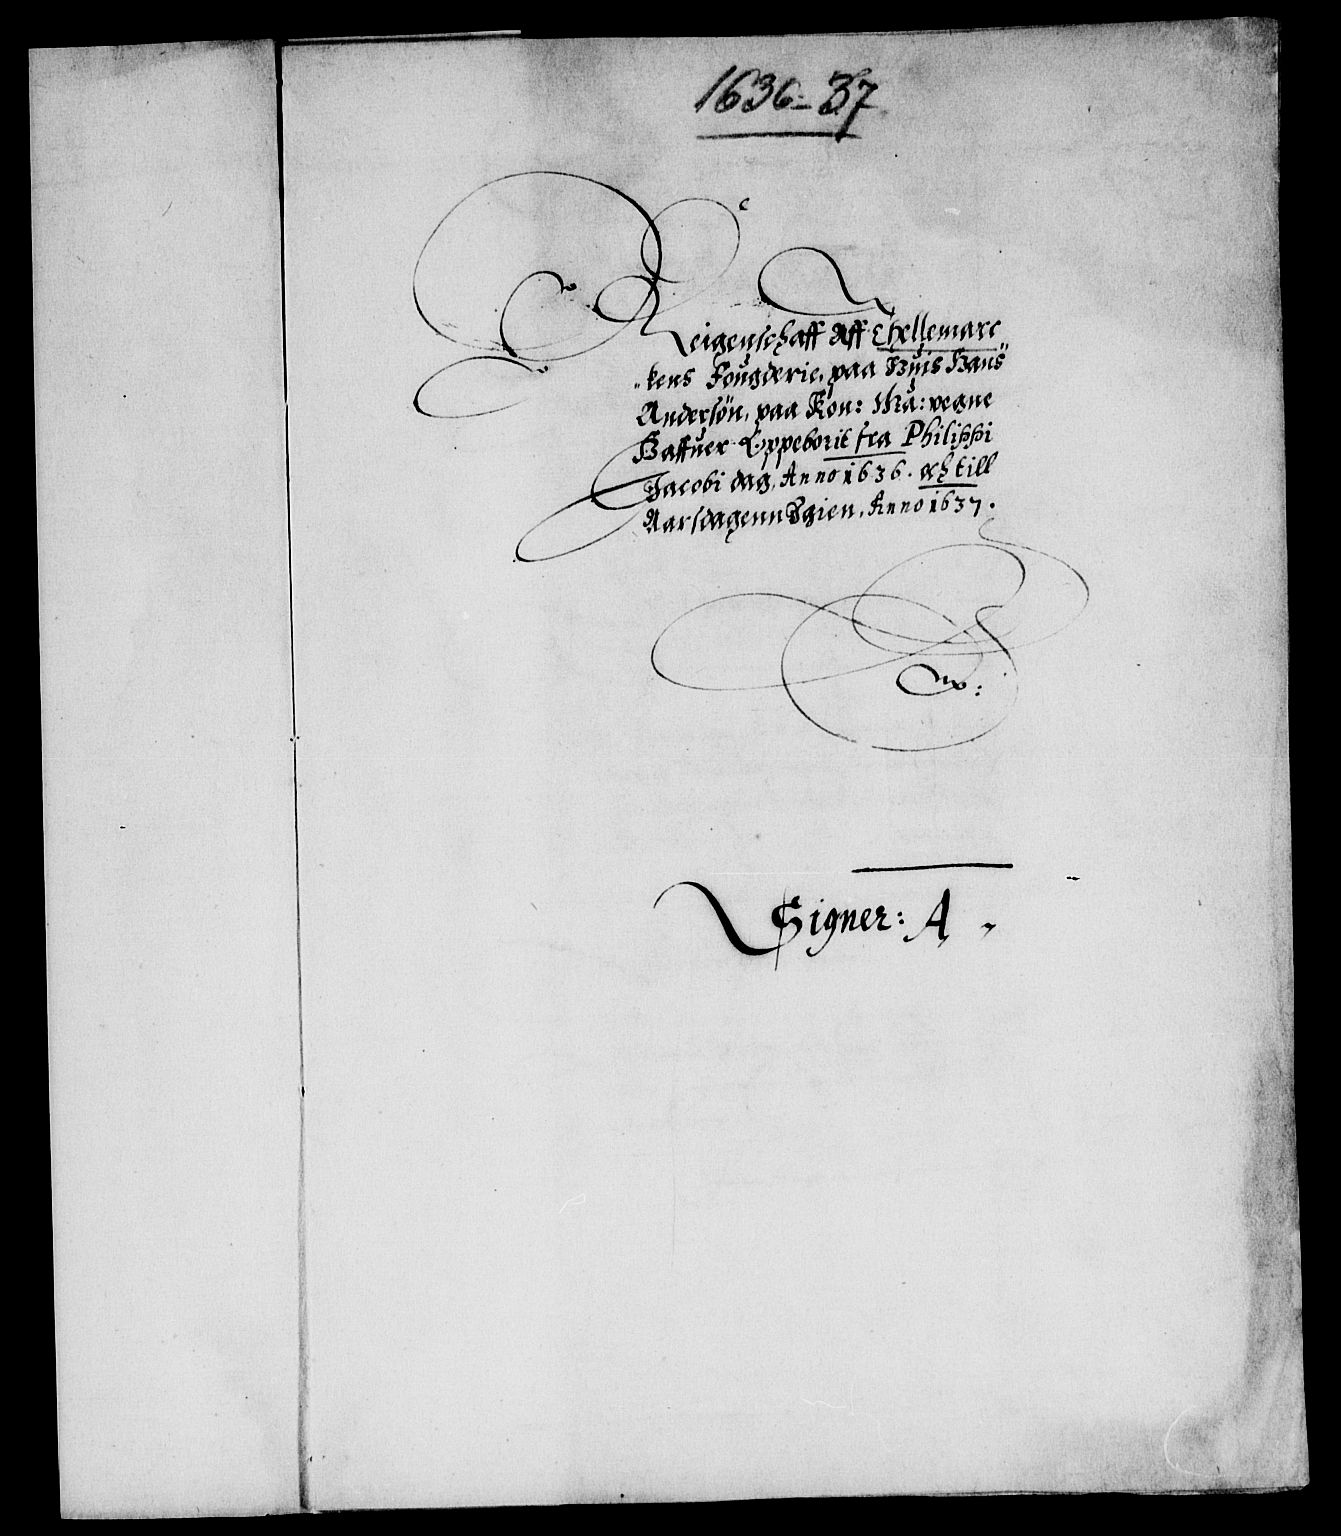 1636-37
Reigenschaff Aff Thellemarc
"kens Fougderie, paa Huis Hans
Andersön, paa Kon: Ma: vegne
Haffuer Oppeborit fra Philippi
Jacobi dag, Anno 1636. och till
Aarsdagenn Igien, Anno 1637.
Signer: A